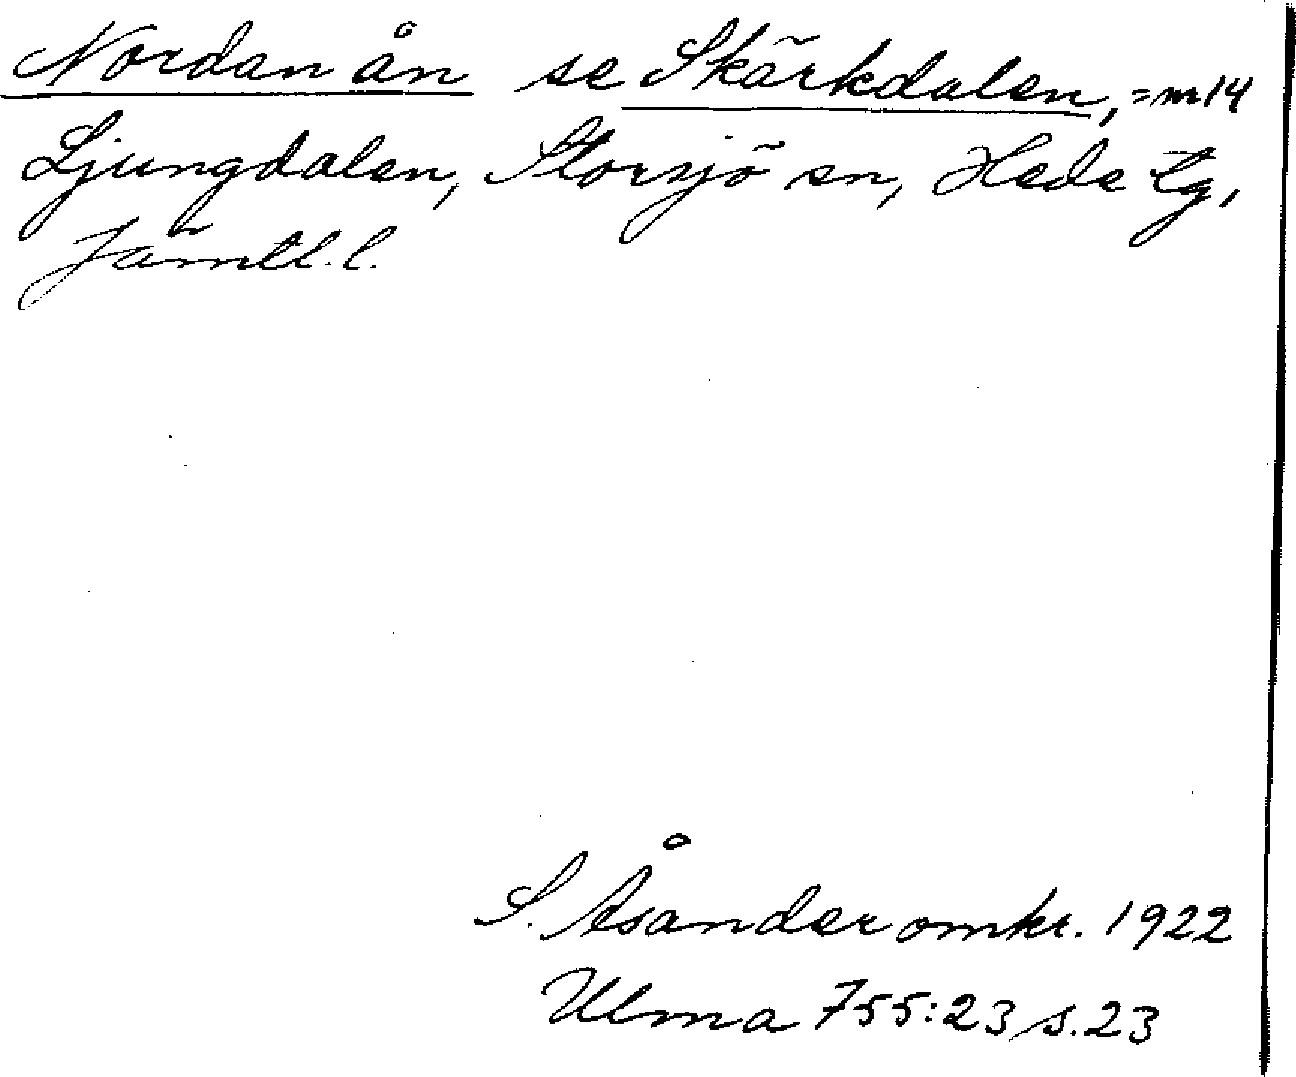 Nordan ån se Skärkdalen, = m 14
Ljungdalen, Storsjö sn, Hede tg,
Jämtl. l.
S. Åsander omkr. 1922
Ulma 755:23 s. 23